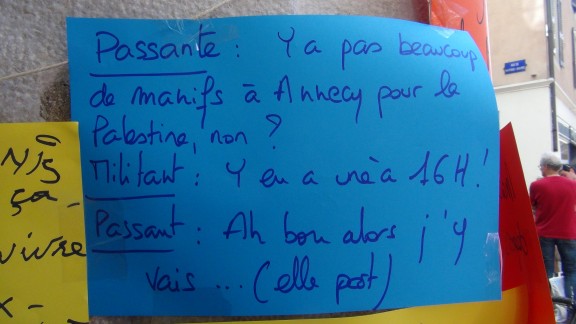 Passante : Y a pas beaucoup
de manifs à Annecy pour la
Palestine, non ?
Militant : Y en a une à 16H !
Passant : Ah bon alors j'y
vais ... (elle part)
ça
vivre